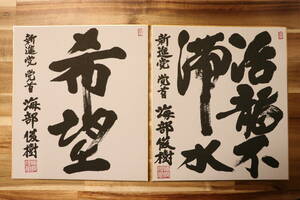 希望
新進党 党首 海部俊樹
活龍不
滞水
新進党 党首 海部俊樹